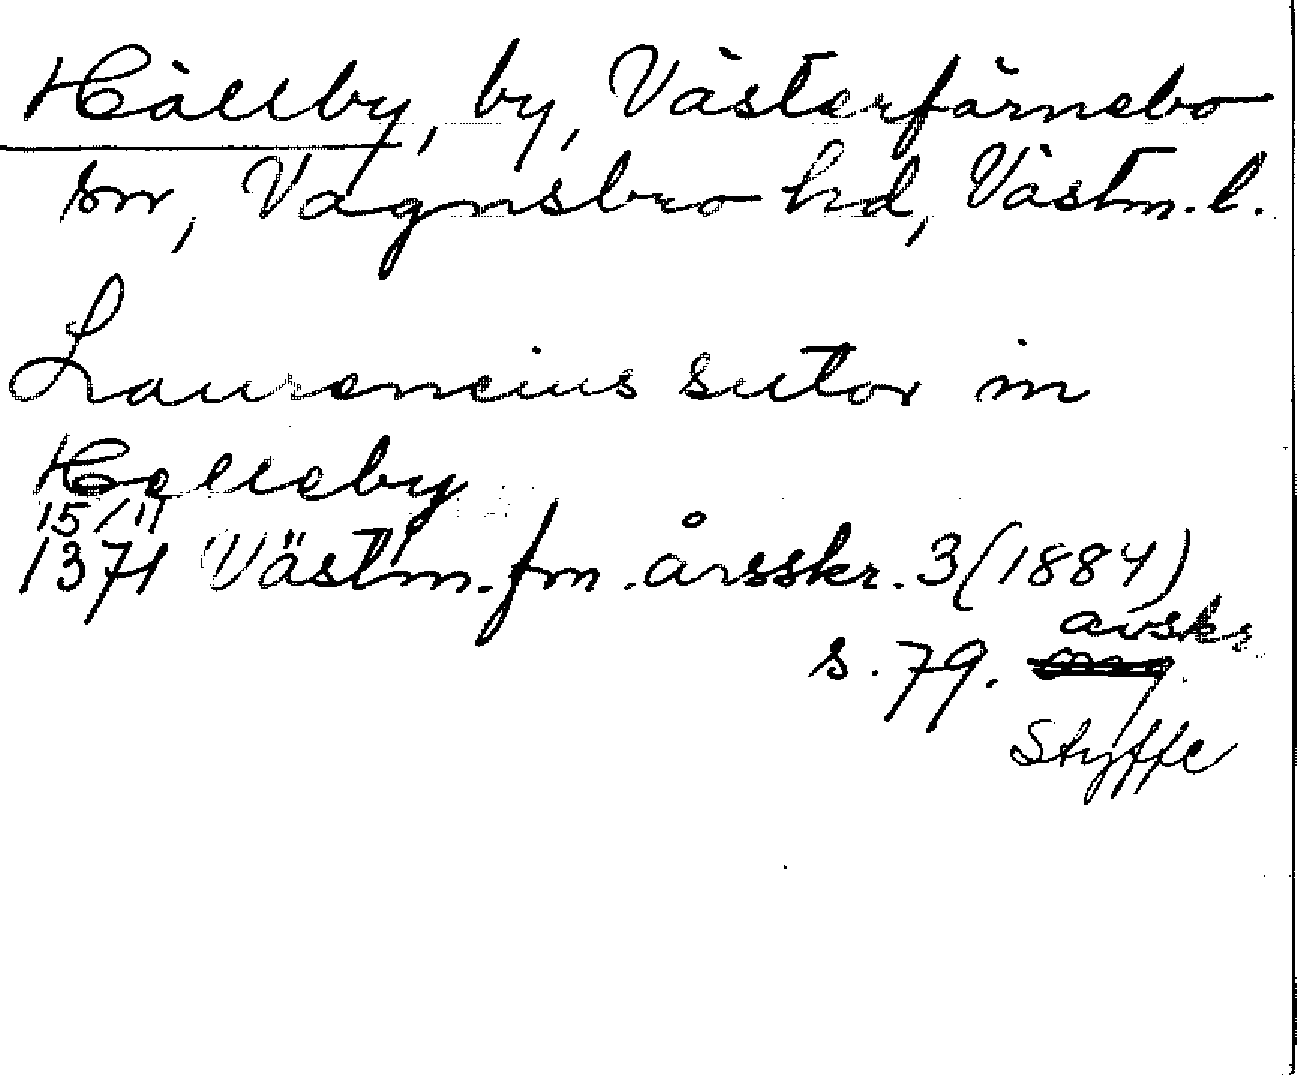 Hällby, by, Västerfärnebo
sn, Vagnsbro hd, Västm. l.
Laurencius sutor in
Helleby
15/11
1371 Västm. fm. årsskr. 3 (1884)
s. 79. avskr.
Styffe